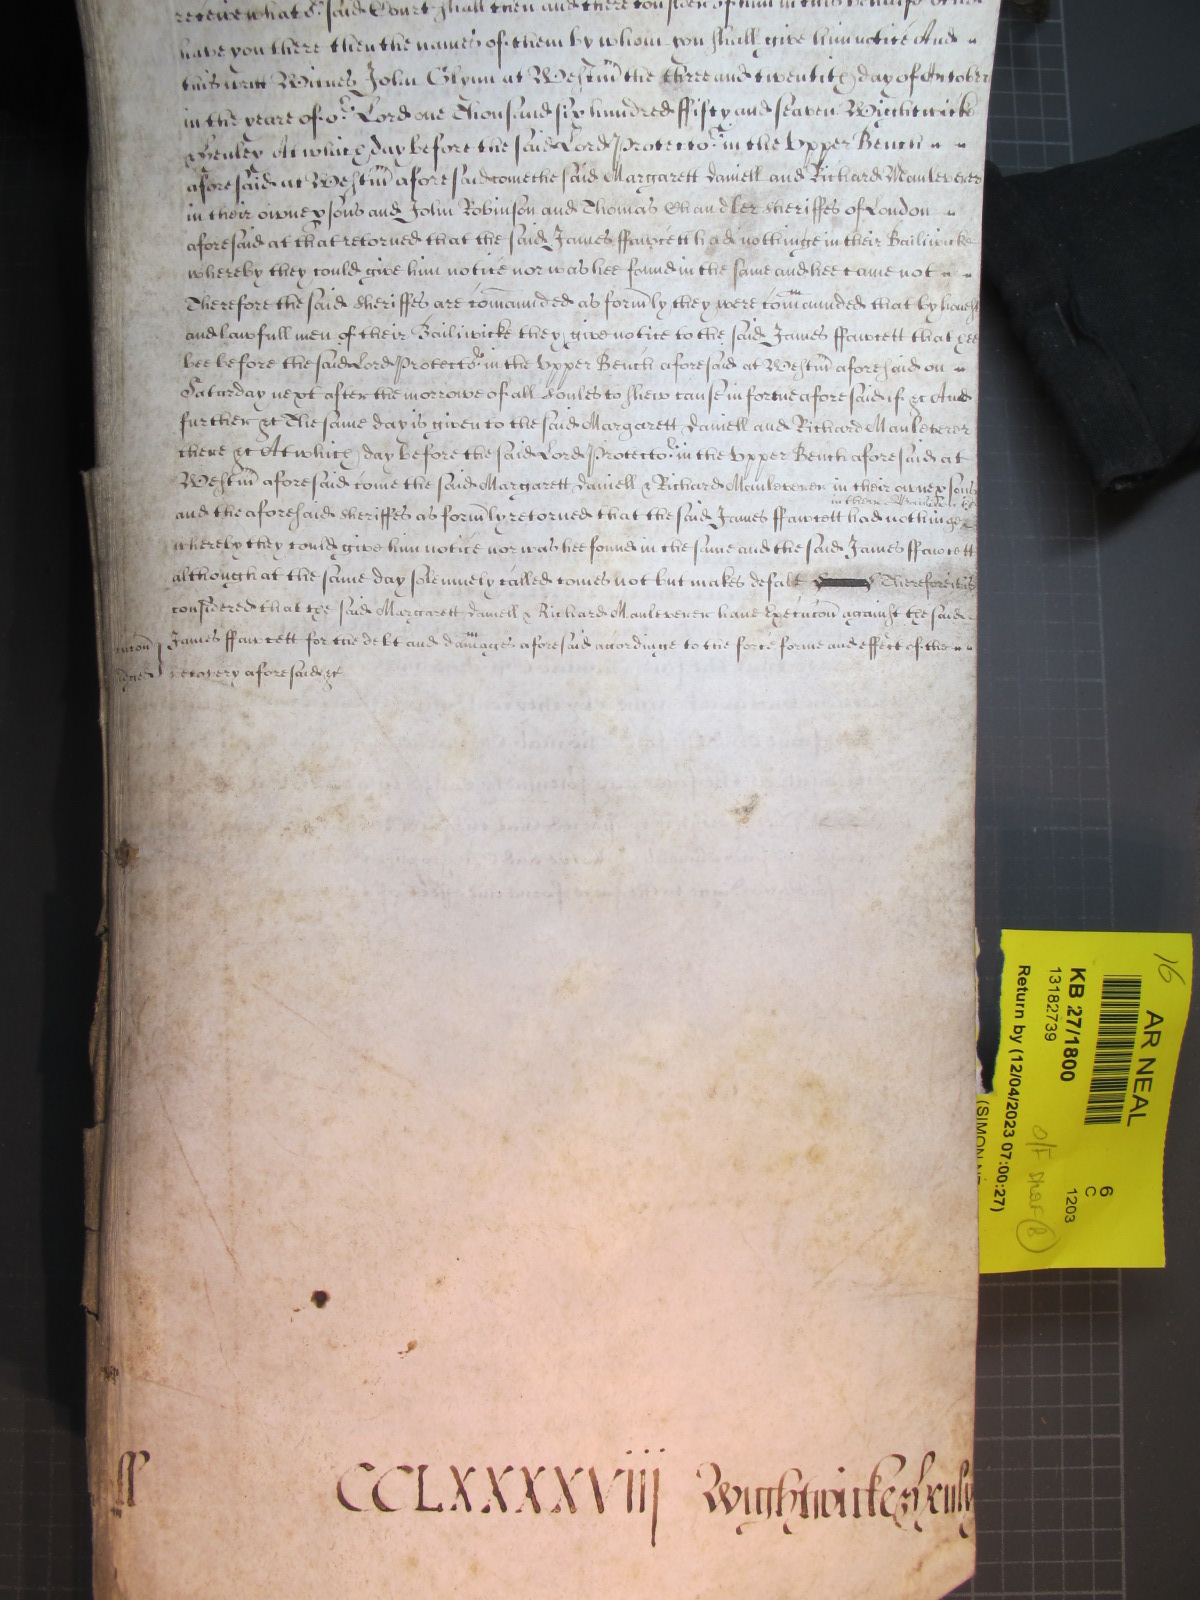 receive what or said Court shall then and there consider of him in this behalfe And
have you there then the names of them by whom you shall give him notice And
this writt Witnes John Glynn at Westm the three and twentith day of October
in the yeare of or Lord one Thousand six hundred ffifty and seaven Wightwicke
& Henley At which day before the said Lord Protector in the Vpper Bench
aforesaid at Westm aforesaid come the said Margarett Daniell and Richard Mauleverer
in their owne psons and John Robinson and Thomas Chandler Sheriffes of London
aforesaid at that retorned that the said James ffawcett had nothinge in their Bailiwicke
whereby they could give him notice nor was hee found in the same and hee came not
Therefore the said Sheriffes are comanded as formly they were comanded that by honest
and lawfull men of their Bailiwicke they give notice to the said James ffawcett that hee
bee before the said Lord Protector in the Vpper Bench aforesaid at Westm aforesaid on
Saturday next after the morrowe of all Soules to shew cause in forme aforesaid if &c And
further &c The same day is given to the said Margarett Daniell and Richard Mauleverer
there &c At which day before the said Lord Protector in the Vpper Bench aforesaid at
Westm aforesaid come the said Margarett Daniell & Richard Mauleverer in their owne psons
in their Bailiwicke
and the aforesaid Sheriffes as formly retorned that the said James ffawcett had nothinge
whereby they could give him notice nor was hee found in the same and the said James ffawcett
although at the same day solemnely called comes not but makes defalt Therefore it is
considered that the said Margarett Daniell & Richard Mauleverer have Execucon against the said
James ffawcett for the debt and damages aforesaid accordinge to the force forme and effect of the
recovery aforesaid &c
ff CCLXXXXXVIII Wightwicke & Henly
16
AR NEAL
KB 27/1800
13182739
Return by (12/04/2023 07:00:27)
6
C
1203
O/F
8